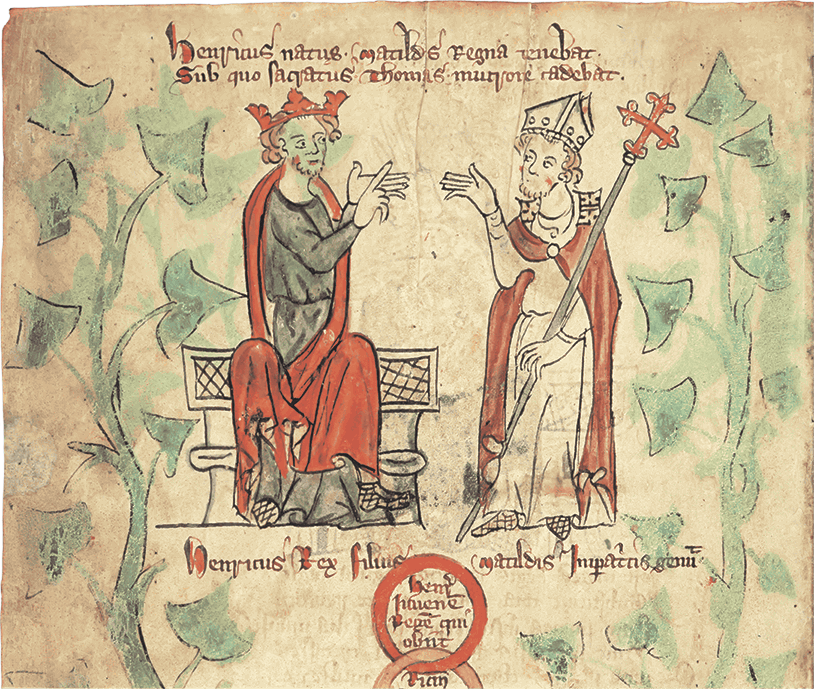 Henricus natus. Matildis Regna tenebat.
Sub quo sacratus Thomas mucrone cadebat.
Henricus Rex filius Matildis
Iuuenē
Regē qui
obiit